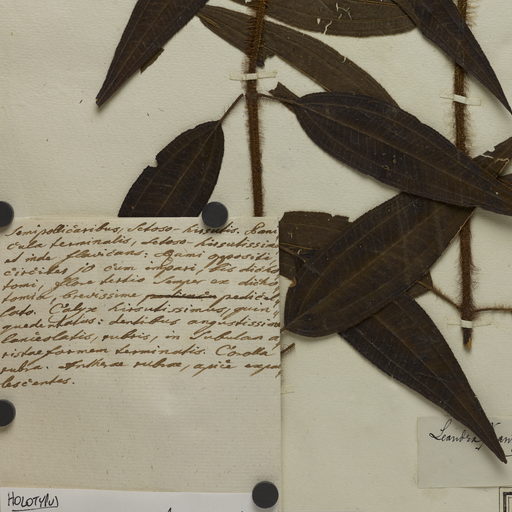 Semipollicaribus, Setoso hirsutis. Pani
Cula terminalis, setoso-hirsutissima
et inde flavicans: Rami oppositi
circiter 10 cum impari, bis dicho
tomi, flore tertio semper ex dicho
tomia, brevissime pedicel
lato. Calyx hirsutissimus, quin
quedentatus: dentibus angustissime
lanceolatis, rubris, in Subulam a
ristaeformem terminatis. Corolla
rubra. Antherae rubrae, apice expal
lescentes.
Leandra
HOLOTYPUS